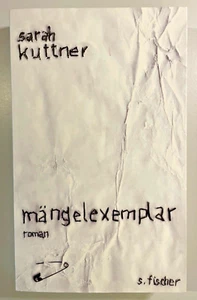 sarah
kuttner
mängelexemplar
roman
s. fischer